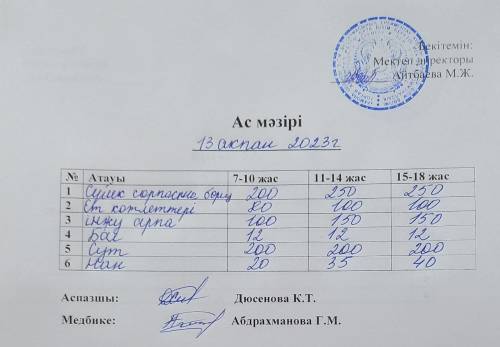 Бекітемін:
Мектеп директоры
Айтбаева М.Ж.
Ас мәзірі
13 ақпан 2023г
№ Атауы 7-10 жас 11-14 жас 15-18 жас
1 Сүйек сорпасына борщ 200 250 250
2 Ет котлеттері 80 100 100
3 інжу арпа 100 150 150
4 Бал 12 12 12
5 Сүт 200 200 200
6 Нан 20 35 40
Аспазшы: Дюсенова К.Т.
Медбике: Абдрахманова Г.М.